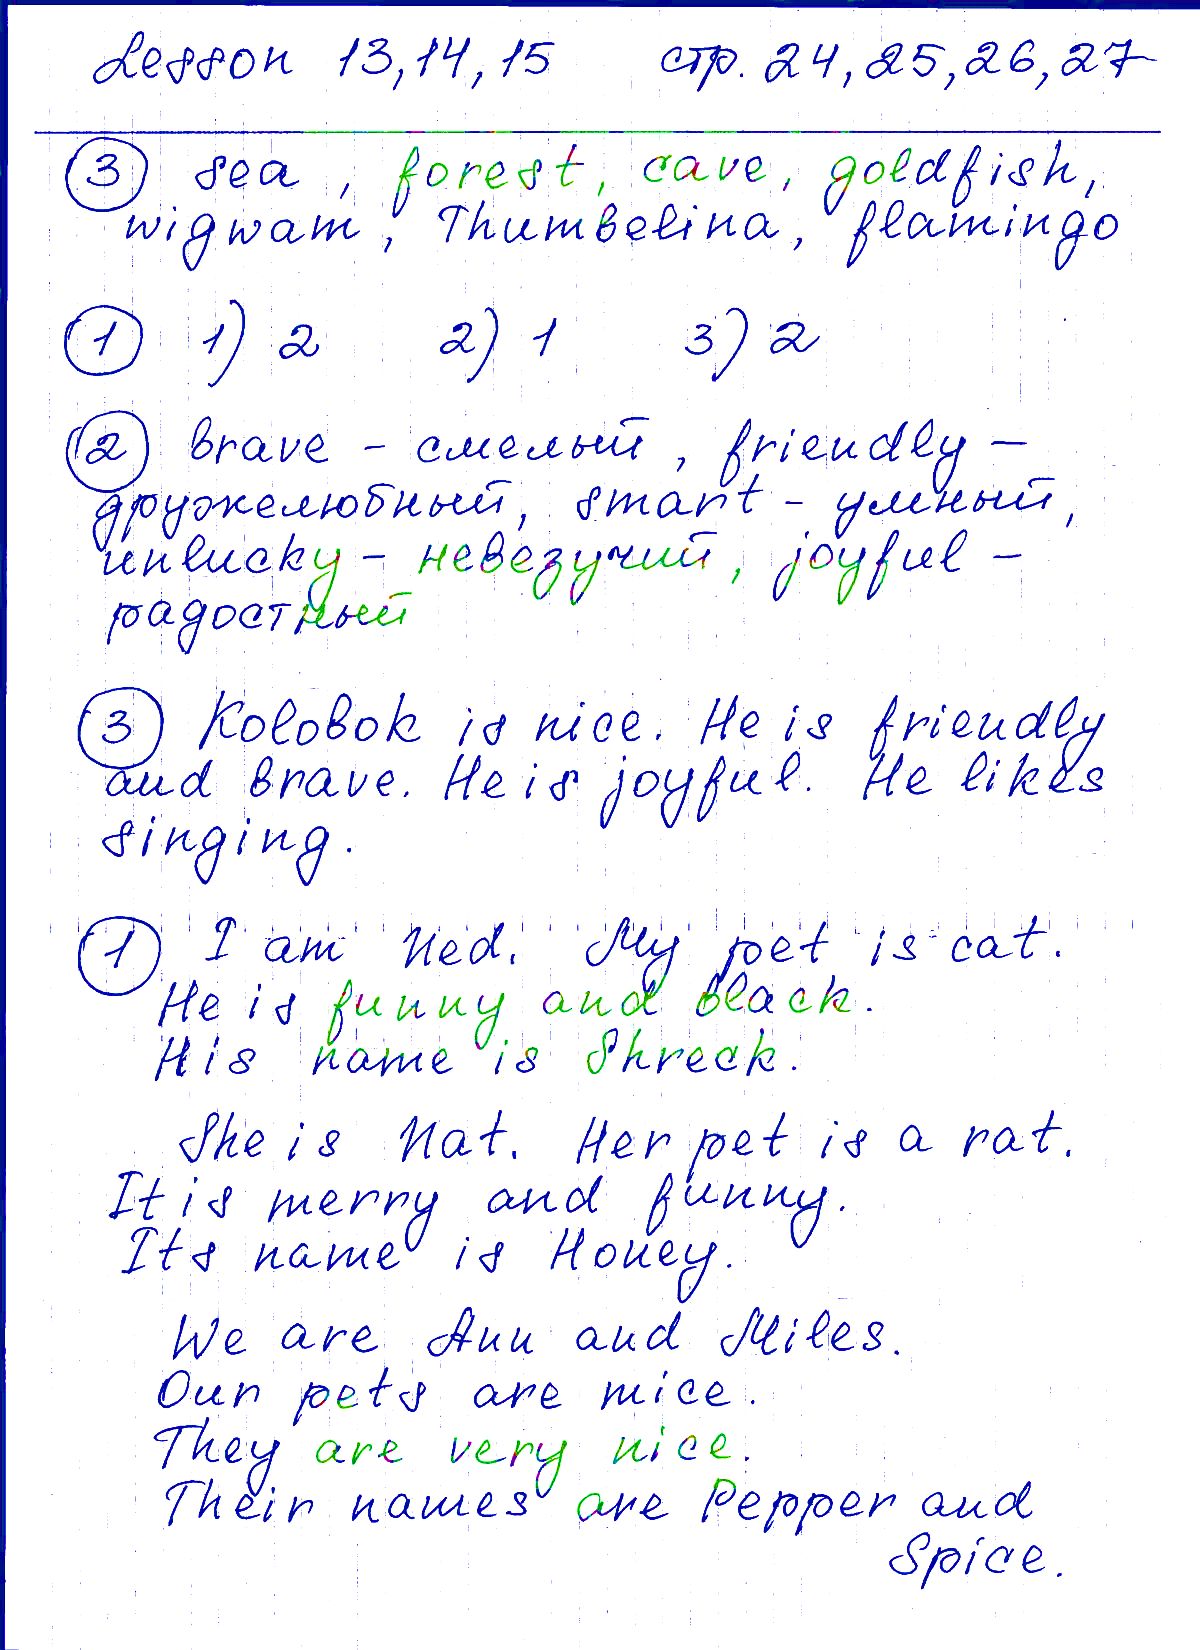 Lesson 13,14,15 стр. 24,25,26,27
3 sea, forest, cave, goldfish,
wigwam, Thumbelina, flamingo
1 1) 2 2) 1 3) 2
2 brave - смелый, friendly -
дружелюбный, smart - умный,
unlucky - невезучий, joyful -
радостный
3 Kolobok is nice. He is friendly
and brave. He is joyful. He likes
singing.
1 I am Ned. My pet is cat.
He is funny and black.
His name is Shreck.
She is Nat. Her pet is a rat.
It is merry and funny.
Its name is Honey.
We are Ann and Miles.
Our pets are mice.
They are very nice.
Their names are Pepper and
Spice.